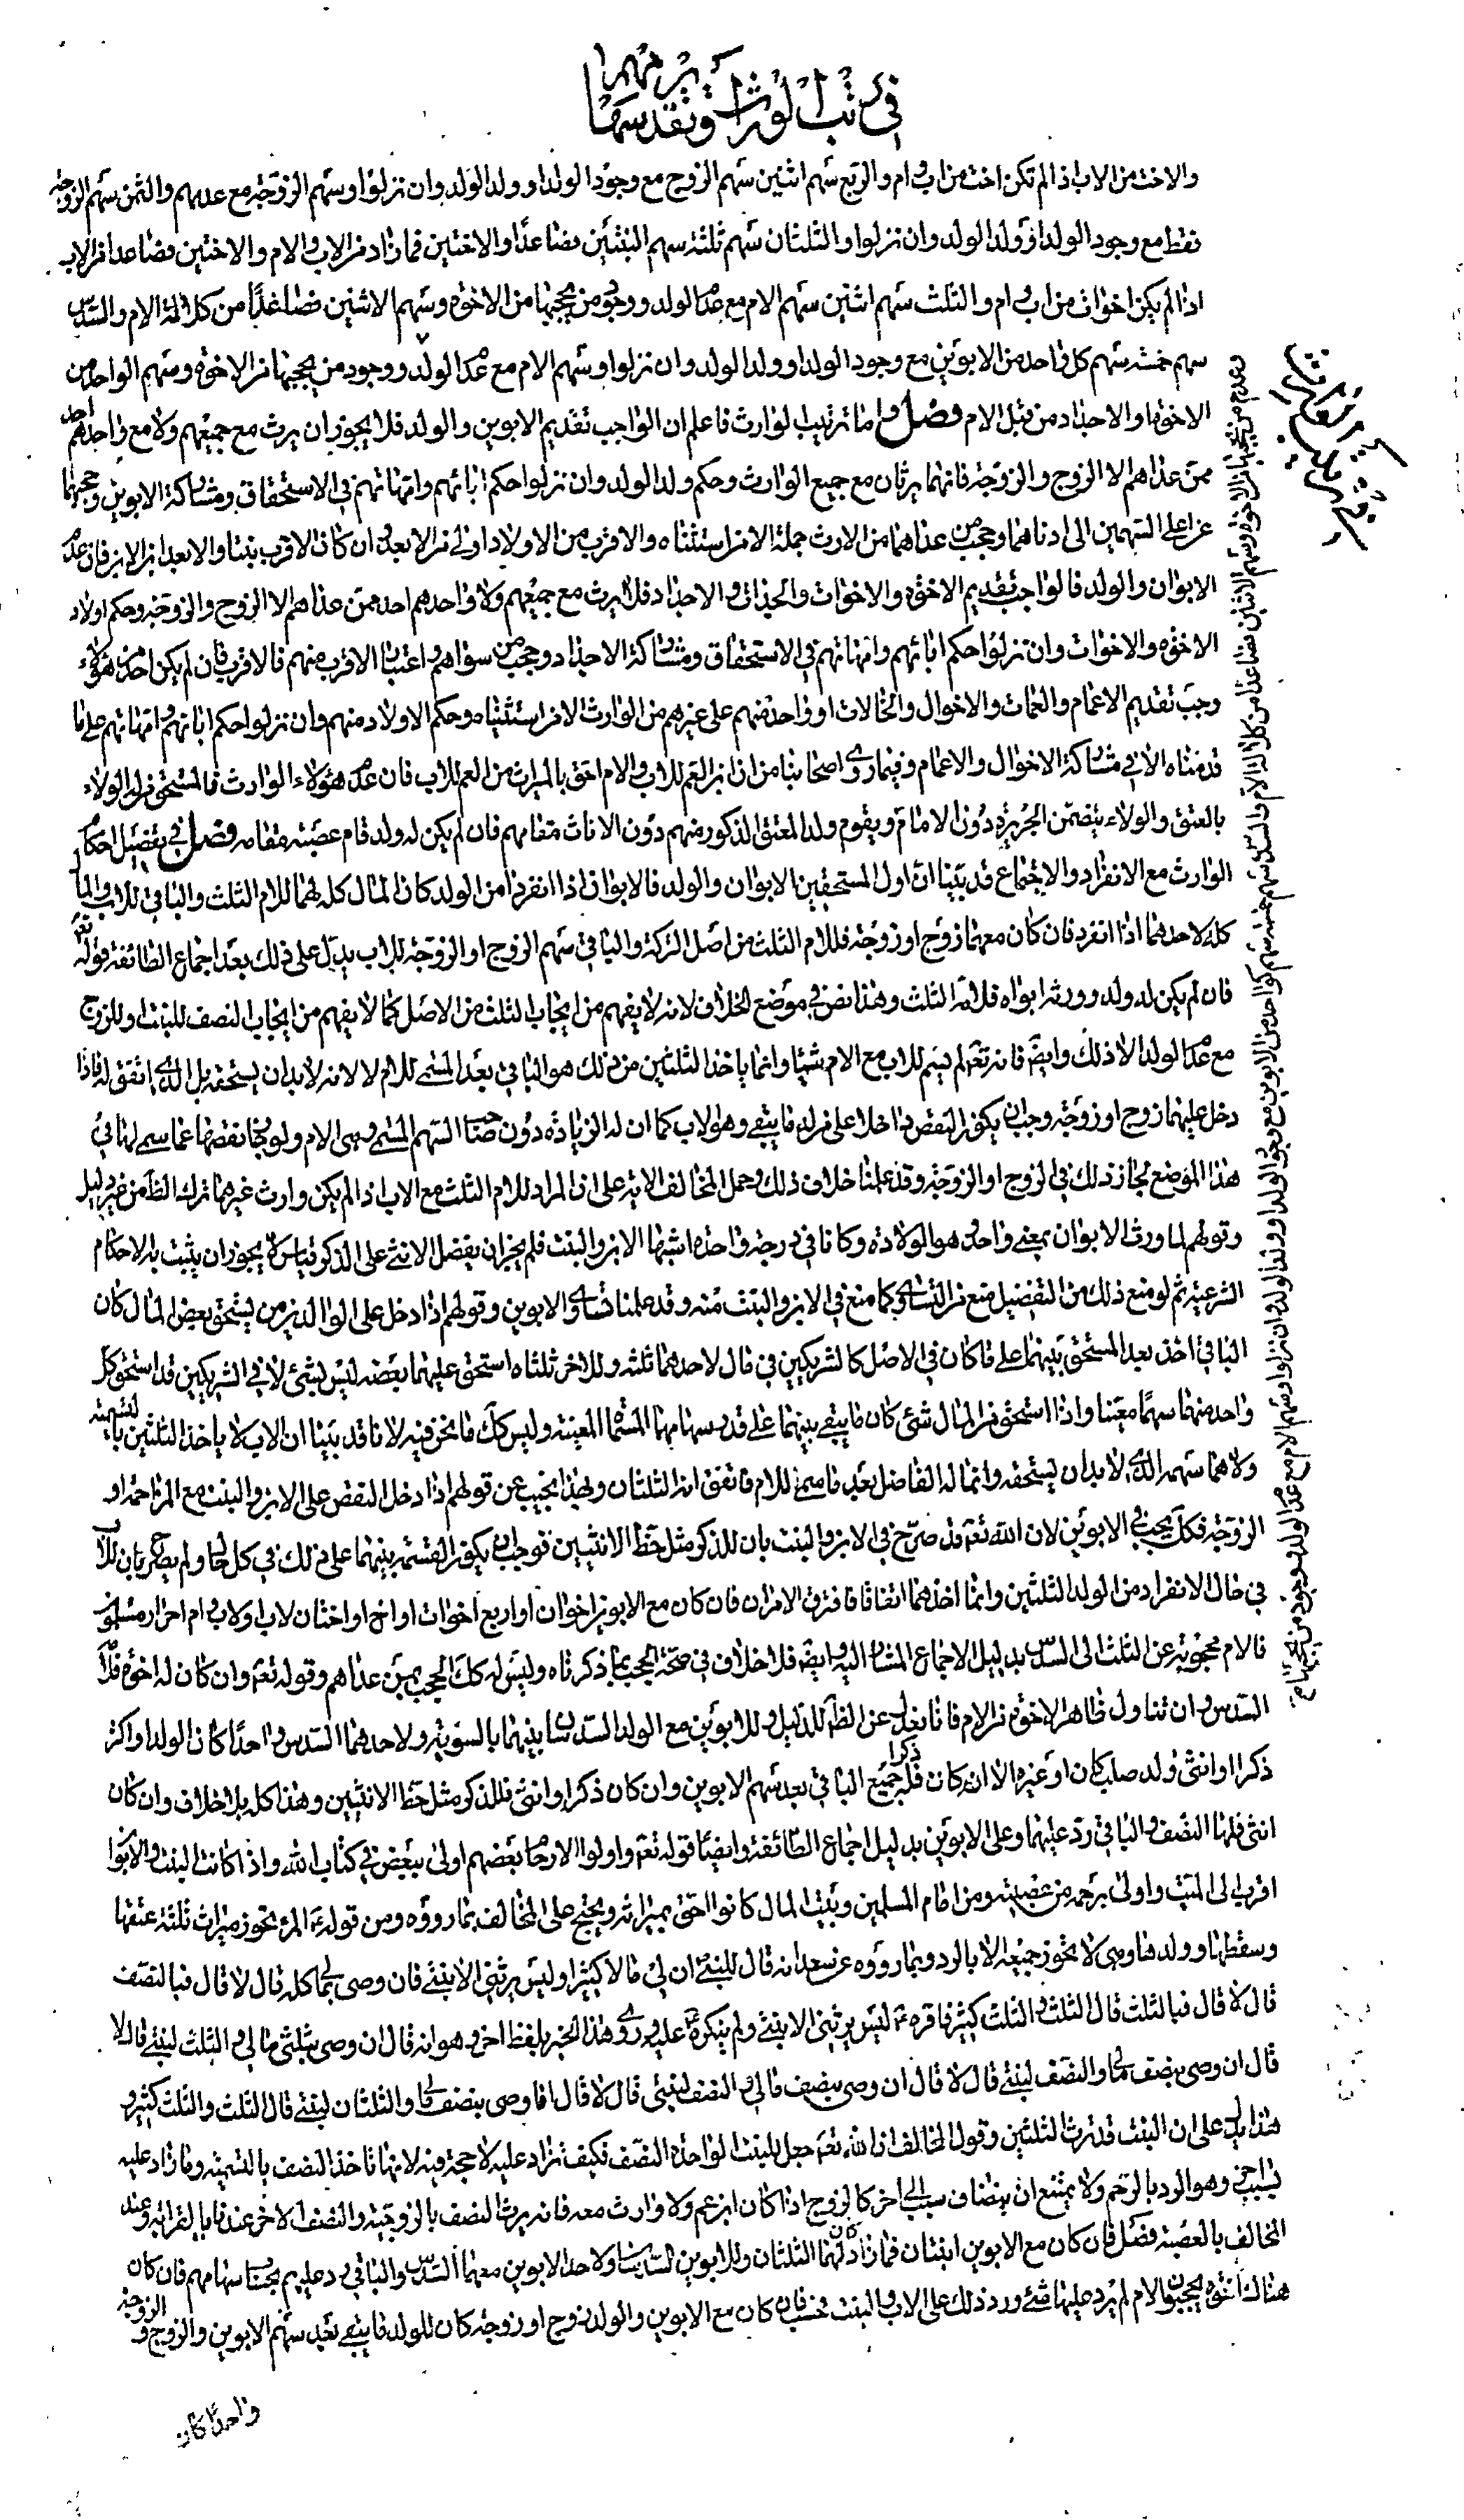 في ترتيب الوراث وتقدير سهمها
والاخت من الاب اذا لم تكن اخت من اب وام والربع سهم اثنين سهم الزوج مع وجود الولد او ولد الولد وان نزلوا وسهم الزوجة مع عدمهم والثمن سهم الزوجة
فقط مع وجود الولد او ولد الولد وان نزلوا والثلثان سهم ثلثة سهم البنتين فصاعدا والاختين فما زاد من الاب والام والاختين فصاعدا من الاب
اذا لم يكن اخوات من اب وام والثلث سهم اثنين سهم الام مع عدم الولد ووجود من يحجبها من الاخوة وسهم الاثنين فصاعدا من كلالة الام والسدس
سهم خمسة سهم كل واحد من الابوين مع وجود الولد او ولد الولد وان نزلوا وسهم الام مع عدم الولد ووجود من يحجبها من الاخوة وسهم الواحد من
الاخوة او الاجداد من قبل الام فصل واما ترتيب الوارث فاعلم ان الواجب تقديم الابوين والولد فلا يجوز ان يرث مع جميعهم ولا مع واحدهم احد
ممن عداهم الا الزوج والزوجة فانهما يرثان مع جميع الوارث وحكم ولد الولد وان نزلوا حكم ابائهم وامهاتهم في الاستحقاق ومشاركة الابوين وحجبهما
عن اعلى السهمين الى ادناهما وحجب من عداهما من الارث جملة الا من استثناه والاقرب من الاولاد اولى من الابعد وان كان الاقرب بنتا والابعد ابن الابن فان عدم
الابوان والولد فالواجب تقديم الاخوة والاخوات والجدات والاجداد فلا يرث مع جميعهم ولا واحدهم احد ممن عداهم الا الزوج والزوجة وحكم اولاد
الاخوة والاخوات وان نزلوا حكم ابائهم وامهاتهم في الاستحقاق ومشاركة الاجداد وحجب من سواهم واعتبار الاقرب منهم فالاقرب فان لم يكن احد من هؤلاء
وجب تقديم الاعمام والعمات والاخوال والخالات او واحد منهم على غيرهم من الوارث الا من استثنيناه وحكم الاولاد منهم وان نزلوا حكم ابائهم وامهاتهم على ما
قدمناه الا في مشاركة الاخوال والاعمام وفيما روى اصحابنا من ان ابن العم للاب والام احق بالميراث من العم للاب فان عدم هؤلاء الوارث فالمستحق من له الولاء
بالعتق والولاء بتضمن الجريرة دون الامام ويقوم ولد المعتق الذكور منهم دون الاناث مقامهم فان لم يكن له ولد قام عصبته مقامه فصل في تفصيل احكام
الوارث مع الانفراد والاجتماع قد بينا ان اول المستحقين الابوان والولد فالابوان اذا انفردا من الولد كان المال كله لهما للام الثلث والباقي للاب والمال
كله لاحدهما اذا انفرد فان كان معهما زوج او زوجة فللام الثلث من اصل التركة والباقي سهم الزوج او الزوجة للاب يدل على ذلك بعد اجماع الطائفة قوله تع
فان لم يكن له ولد وورثه ابواه فلامه الثلث وهذا نص في موضع الخلاف لانه لا يفهم من ايجاب الثلث من الاصل كما لا يفهم من ايجاب النصف للبنت وللزوج
مع عدم الولد الا ذلك وايضا فانه تع لم يسم للاب مع الام شيئا وانما ياخذ الثلثين من ذلك هو الباقي بعد المسمى للام لا لانه لا بد ان يستحقه بل الذي اتفق له فاذا
دخل عليهما زوج او زوجة وجب ان يكون النقص داخلا على من له ما يبقى وهو الاب كما ان له الزيادة دون صاحب السهم المسمى وهي الام ولو جاز نقصها عما سمى لها في
هذا الموضع لجاز ذلك في الزوج او الزوجة وقد علمنا خلاف ذلك وحمل المخالف الاية على ان المراد للام الثلث مع الاب اذا لم يكن وارث غيرهما ترك الظاهر من غير دليل
وقولهم لما ورث الابوان بمعنى واحد وهو الولادة وكانا في درجة واحدة اشبها الابن والبنت فلم يجز ان يفضل الانثى على الذكر قياس لا يجوز ان يثبت به الاحكام
الشرعية ثم لو منع ذلك من التفضيل منع من التساوي كما منع في الابن والبنت منه وقد علمنا تساوي الابوين وقولهم اذا دخل على الوالدين من يستحق بعض المال كان
الباقي اخذ بعد المستحق بينهما على ما كان في الاصل كالشريكين في مال لاحدهما ثلثه وللاخر ثلثاه استحق عليهما بعضه ليس بشيء لان الشريكين قد استحق كل
واحد منهما سهما معينا واذا استحق من المال شيء كان ما يبقى بينهما على قدر سهامهما المسماة المعينة وليس كك ما نحن فيه لانا قد بينا ان الاب لا ياخذ الثلثين بالتسمية
ولا هما سهمه الذي لا بد ان يستحقه وانما له الفاضل بعد ما سمى للام فاتفق انه الثلثان وبهذا نجيب عن قولهم اذا دخل النقص على الابن والبنت مع المزاحمة او
الزوجة فكك يجب في الابوين لان الله تع قد صرح في الابن والبنت بان للذكر مثل حظ الانثيين فوجب ان يكون القسمة بينهما على ذلك في كل حال ولم يصرح بان للاب
في حال الانفراد من الولد الثلثين وانما اخذهما اتفاقا فافترق الامران فان كان مع الابوين اخوان او اربع اخوات او اخ واختان لاب او لاب وام احرار مسلمون
فالام محجوبة عن الثلث الى السدس بدليل الاجماع المشار اليه وايضا فلا خلاف في صحة الحجب بما ذكرناه وليس له كك الحجب بمن عداهم وقوله تع وان كان له اخوة فلامه
السدس وان تناول ظاهر الاخوة من الام فانا نعدل عن الظاهر للدليل وللابوين مع الولد السدسان بينهما بالسوية ولاحدهما السدس واحدا كان الولد او اكثر
ذكرا او انثى ولد صلب كان او غيره الا ان كان ذكرا فله جميع الباقي بعد سهم الابوين وان كان ذكرا وانثى فللذكر مثل حظ الانثيين وهذا كله بلا خلاف وان كان
انثى فلها النصف والباقي رد عليها وعلى الابوين بدليل اجماع الطائفة وايضا قوله تع واولوا الارحام بعضهم اولى ببعض في كتاب الله واذا كانت البنت والابوان
اقرب الى الميت واولى برحمه من عصبته ومن امام المسلمين وبيت المال كانوا احق بميراثه ويحتج على المخالف بما رووه ومن قوله المرءة تحوز ميراث ثلثة عتيقها
وسقطها وولدها وهي لا تحوز جميعه الا بالرد وبما رووه عن سعد انه قال للنبي ان لي مالا كثيرا وليس يرثني الا بنتي فاوصي بمالي كله قال لا قال فبالنصف
قال لا قال فبالثلث قال الثلث والثلث كثير فاقره ليس يرثني الا بنتي ولم ينكره عليه وروى هذا الخبر بلفظ اخر وهو انه قال افاوصي بثلثي مالي والثلث لبنتي قال لا
قال افاوصي بنصف مالي والنصف لبنتي قال لا قال افاوصي بنصف مالي والنصف لبنتي قال لا قال افاوصي بنصف مالي والثلثان لبنتي قال الثلث والثلث كثير
هذا يدل على ان البنت قد ترث الثلثين وقول المخالف ان الله تع جعل للبنت الواحدة النصف فكيف تزاد عليه لا حجة فيه لانها تاخذ النصف بالتسمية وما زاد عليه
بسبب اخر وهو الرد بالرحم ولا يمتنع ان ينضاف سبب الى اخر كالزوج اذا كان ابن عم ولا وارث معه فانه يرث النصف بالزوجية والنصف الاخر عندنا بالقرابة وعند
المخالف بالعصبة فصل فان كان مع الابوين ابنتان فما زاد كان لهما الثلثان وللابوين السدسان ولاحد الابوين معهما السدس والباقي رد عليهم بحساب سهامهم فان كان
هناك اخوة يحجبون الام لم يرد عليها شيء ورد ذلك على الاب والبنت فحسب فان كان مع الابوين والولد زوج او زوجة كان للولد ما يبقى بعد سهم الابوين والزوج او الزوجة
واحدا كان
وعدم من يحجبها من الاخوة وسهم الاثنين فصاعدا من كلالة الام والسدس سهم خمسة سهم كل واحد من الابوين مع وجود الولد او ولد الولد وان نزلوا وسهم الام مع عدم الولد ووجود من يحجبها من